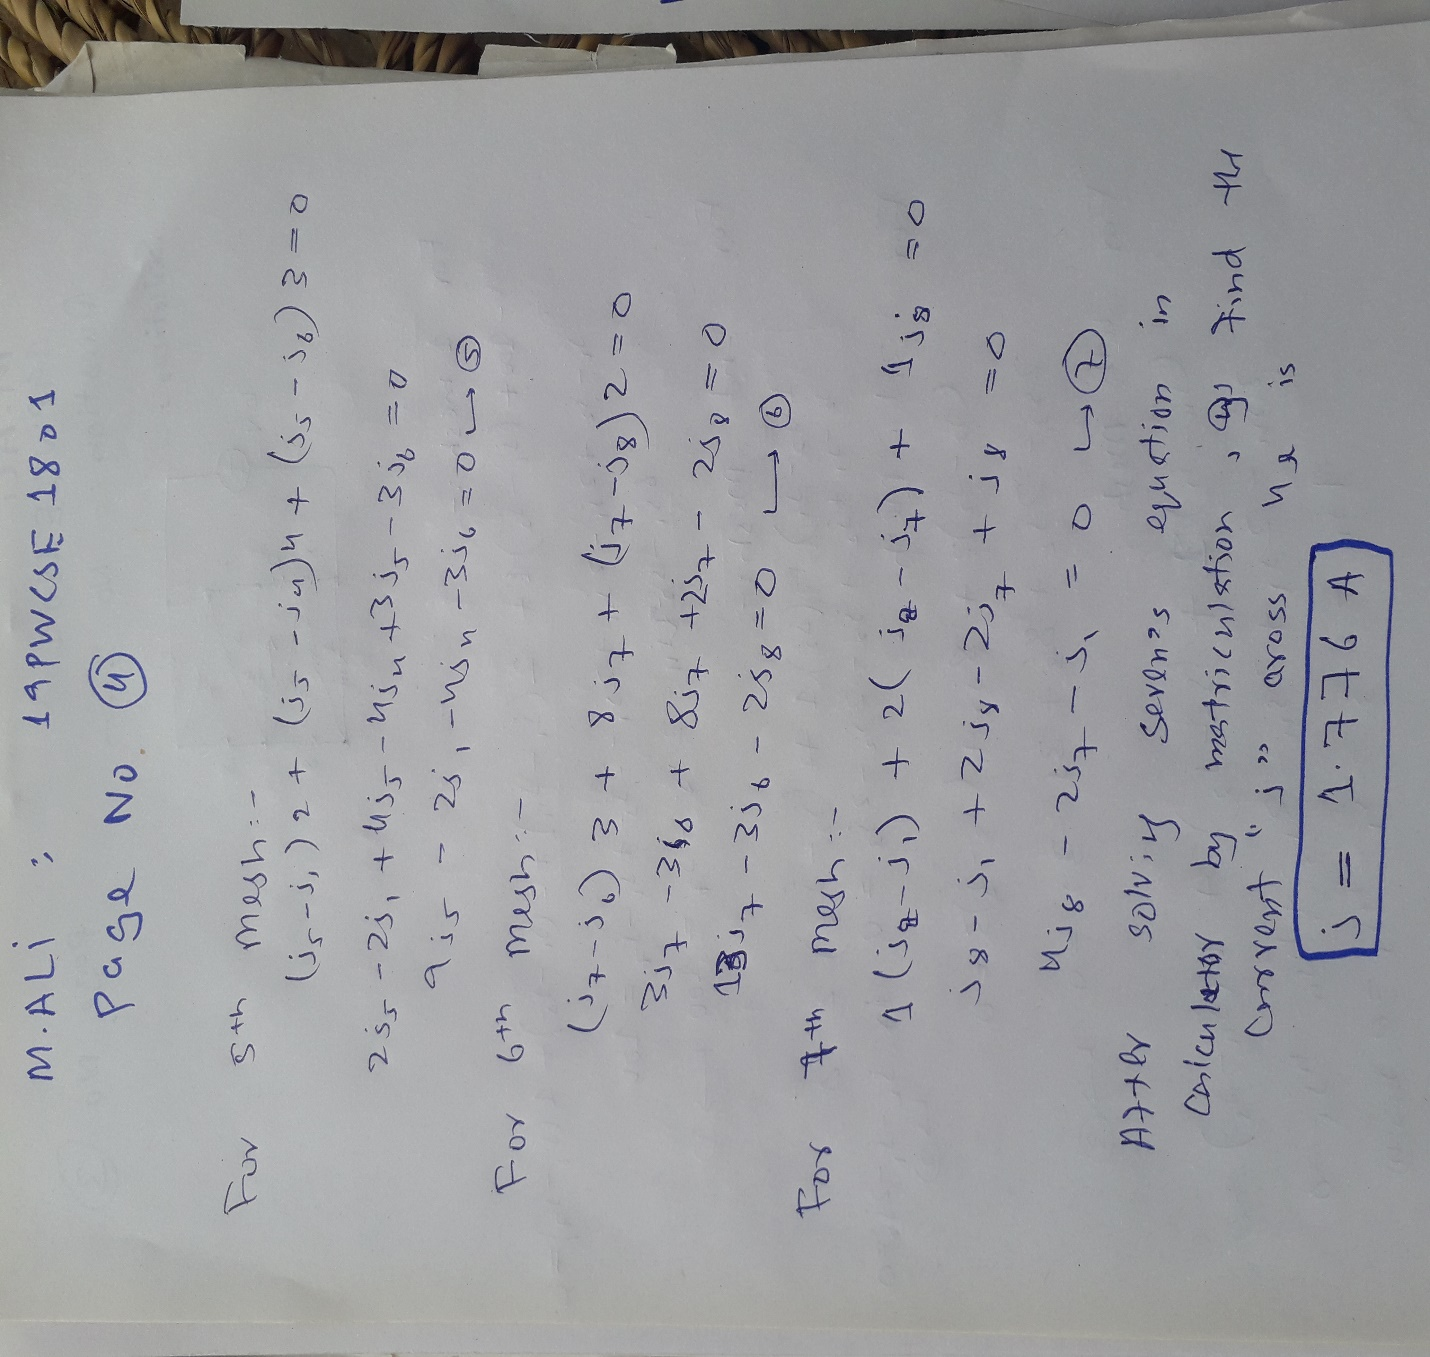 M.ALi : 19PWCSE1801
Page No. (4)
For 5th mesh:-
(j5-j1)2 + (j5-j4)4 + (j5-j6)3=0
2j5-2j1+4j5-4j4+3j5-3j6=0
9j5-2j1-4j4-3j6=0 ↳ (5)
For 6th mesh:-
(j7-j6)3 + 8j7 + (j7-j8)2=0
3j7-3j6+8j7+2j7-2j8=0
13j7-3j6-2j8=0 ↳ (6)
For 7th mesh:-
1(j8-j1) + 2(j8-j7) + 1j8=0
j8-j1+2j8-2j7+j8=0
4j8-2j7-j1=0 ↳ (7)
After solving seven's equation in
calculator by matriculation, find the
current "j" aross 4Ω is
j = 1.776 A